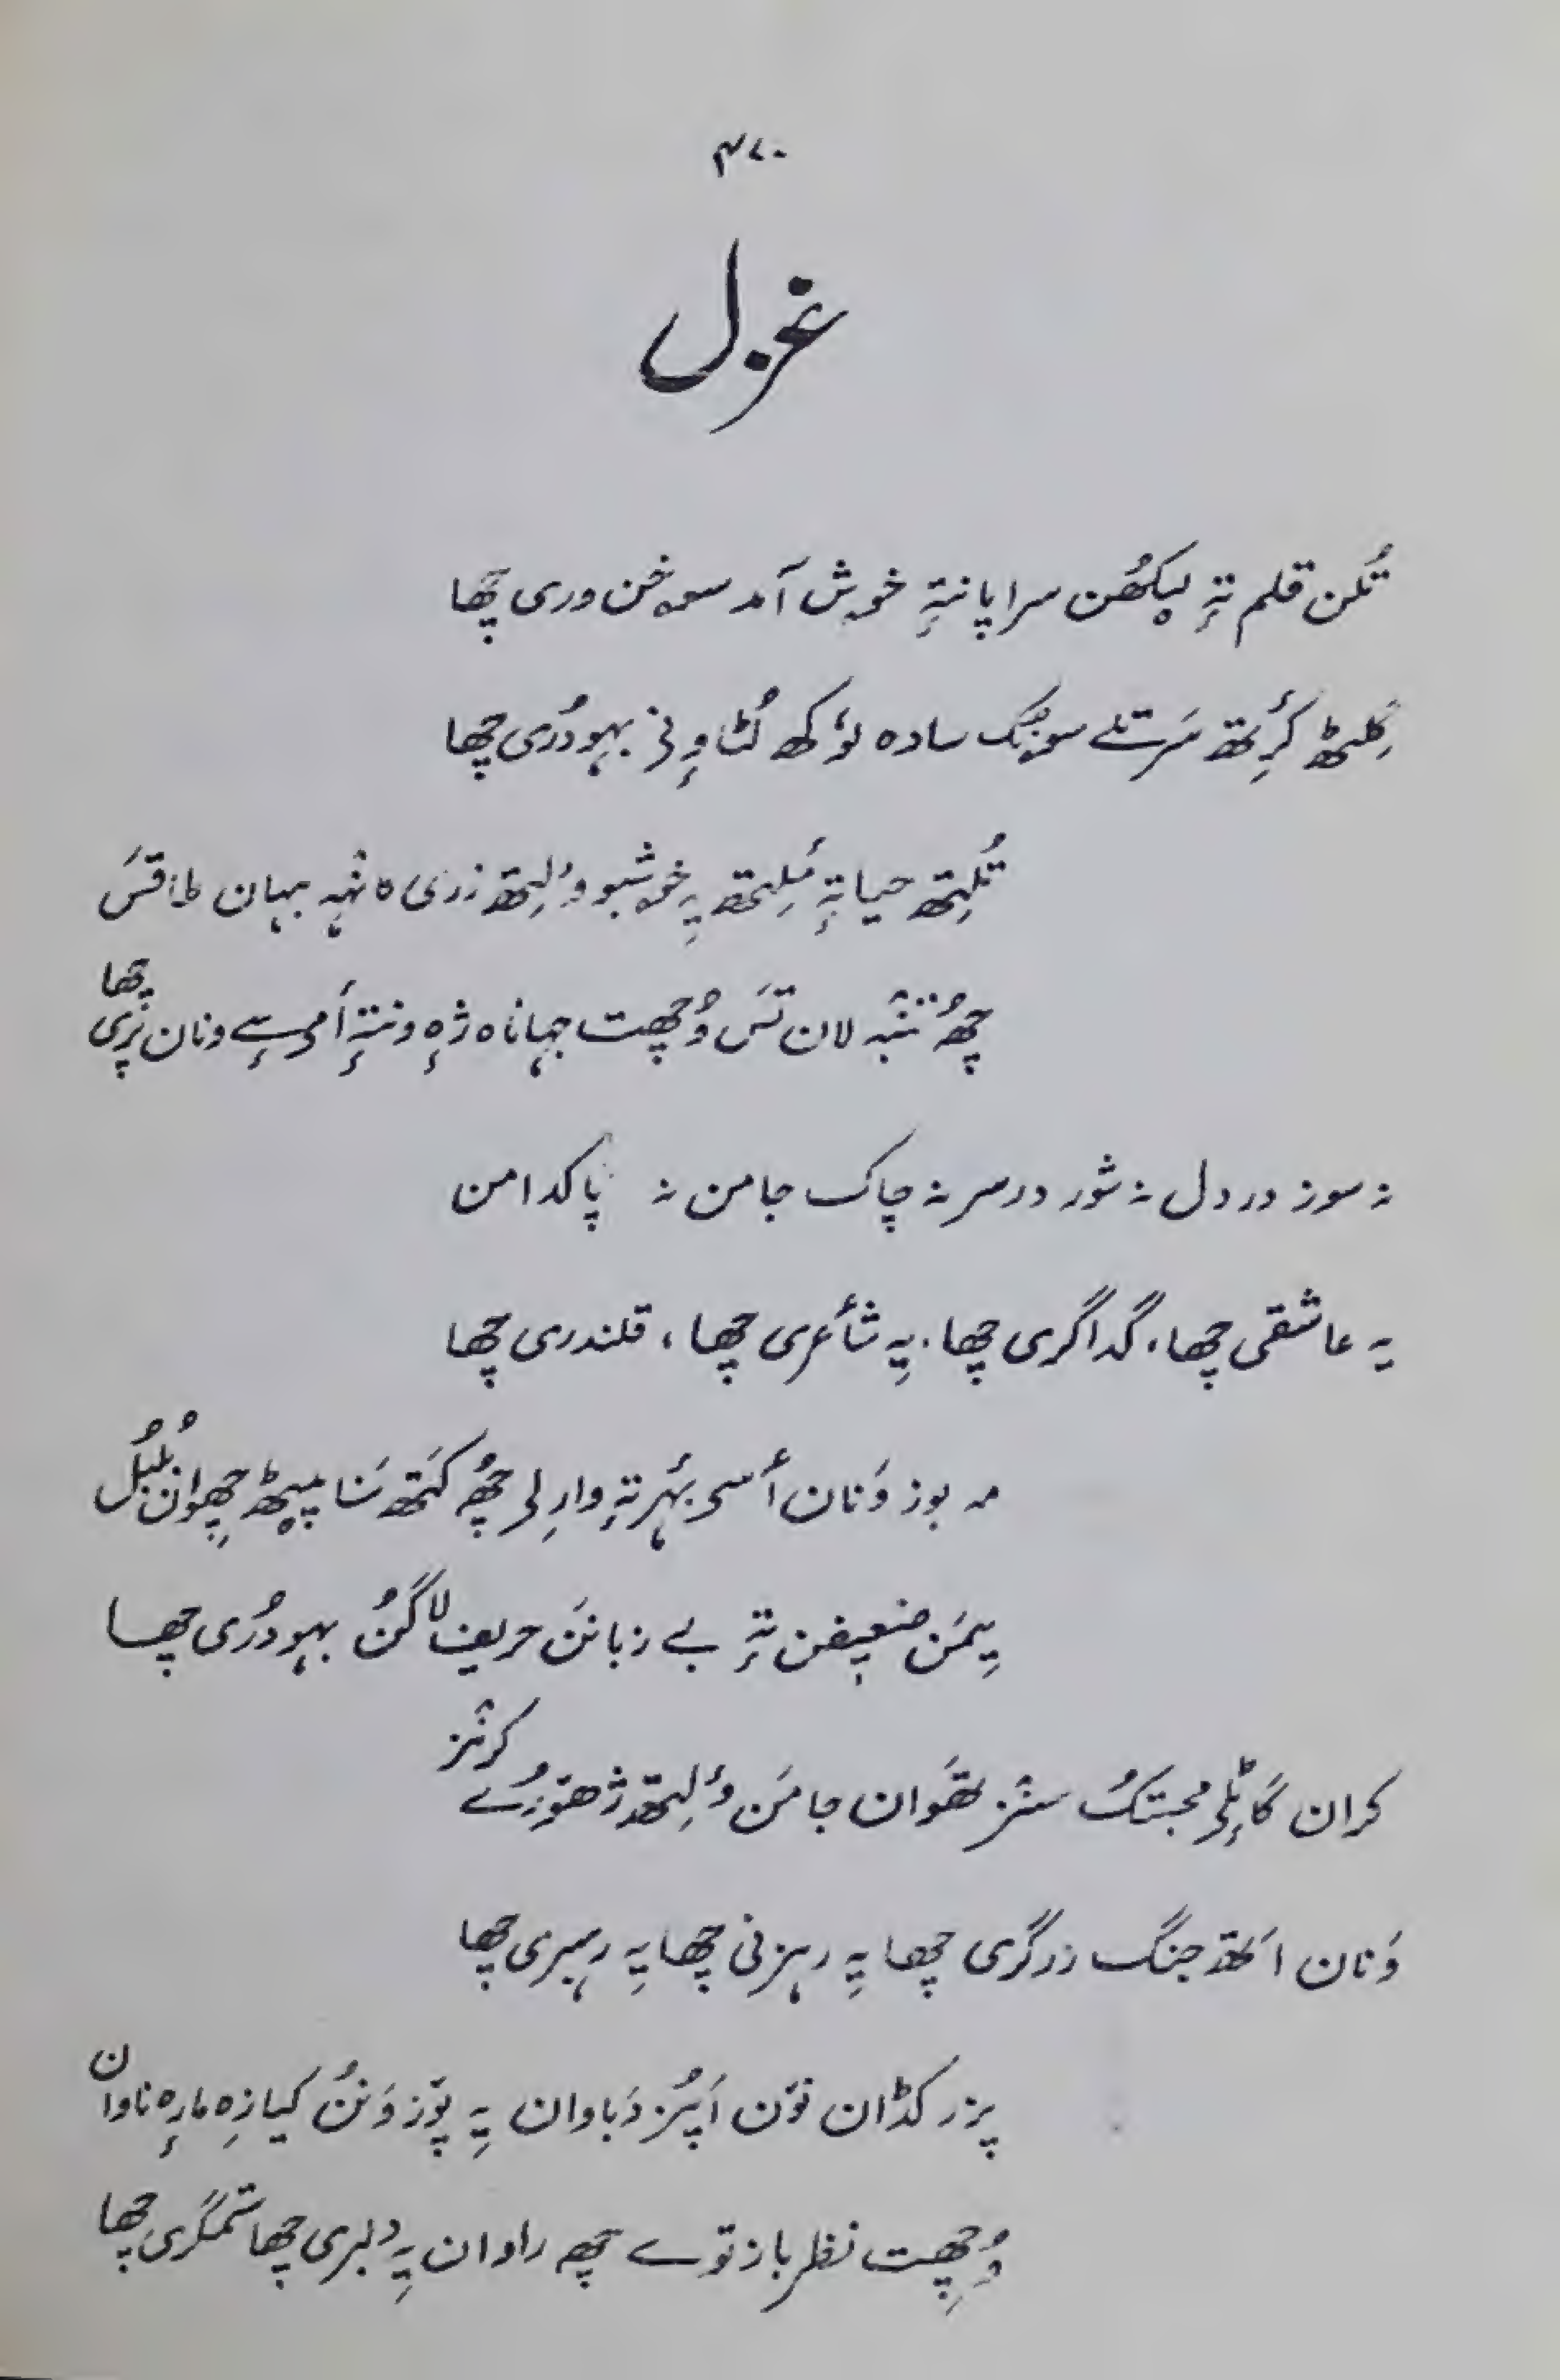 ۴۷۰
غزل
تُلن قلم تہٕ لیکھُن سراپا نتہٕ خوش آمد سوخن وری چھا
کِلیٹھ کٔرِتھ سَرتلے سونَگ سادہ لوٗکھ لُٹاوِنۍ بہودُری چھا
تُلِتھ حیا تہٕ مٔلِتھ یہِ خوشبو وٕلِتھ زری کانٛہہ بہان طاقسَ
چھُ تنبہ لان تسَ وُچھت جہاناہ ژٕہ ونتہٕ أمی سٕے ونان پَری چھا
نہ سوز در دل نہ شور در سر نہ چاک جامن نہ پاکدامن
یہ عاشقی چھا، گداگری چھا، یہِ شأعری چھا، قلندری چھا
مہ بوز وَنان أسۍ بۂر تہٕ وارِلۍ چھُ کَتھ سَنا پیٹھ چھِوان بُلبُل
یِمَن ضعیفن تہٕ بے زبانن حریف لاگنُ بہودُری چھا
کران گاٹِلۍ محبتکُ سنٛز تھَوان جامَن وٕلِتھ ژھوٚرُے کرنٛز
وَنان اَتھ جنگ زرگری چھا یہِ رہزنی چھا یہِ رہبری چھا
پزر کڈان نوٚن اَپُز دَباوان یہِ پوٚز وَنُن کیازِہ مارٕہ ناوان
وُچھِت نظر باز توے چھہِ راوان یہِ دلبری چھا ستمگری چھا